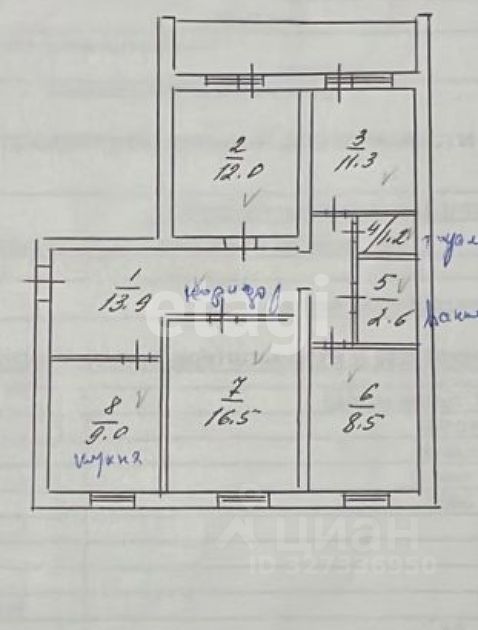 2
12.0
3
11.3
4/1.2
туал
1
13.9
коридор
5
2.6
Ванн
etagi
8
9.0
кухня
7
16.5
6
8.5
циан
ID 327336950